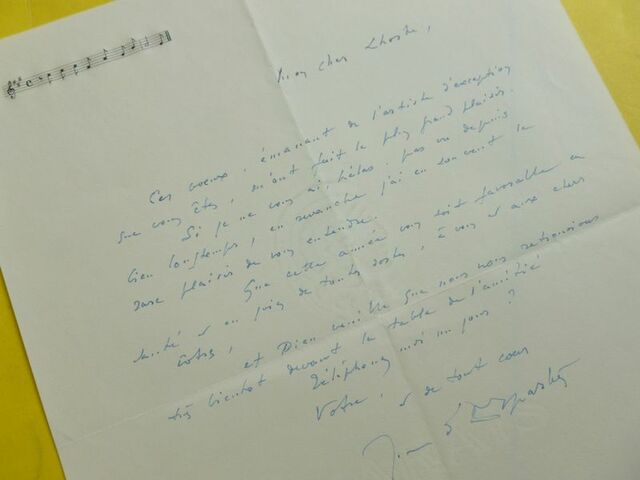 Mon cher Lhoste,
Ces voeux, émanant de l'artiste d'exception
que vous êtes, m'ont fait le plus grand plaisir.
Si je ne vous ai, hélas, pas vu depuis
bien longtemps, en revanche j'ai eu souvent le
rare plaisir de vous entendre.
Que cette année vous soit favorable en
santé et en joies de toutes sortes, à vous et aux chers
vôtres,
et Dieu veuille que nous nous retrouvions
très bientôt devant la table de l'amitié
Téléphonez-moi un jour ?
Votre, et de tout coeur